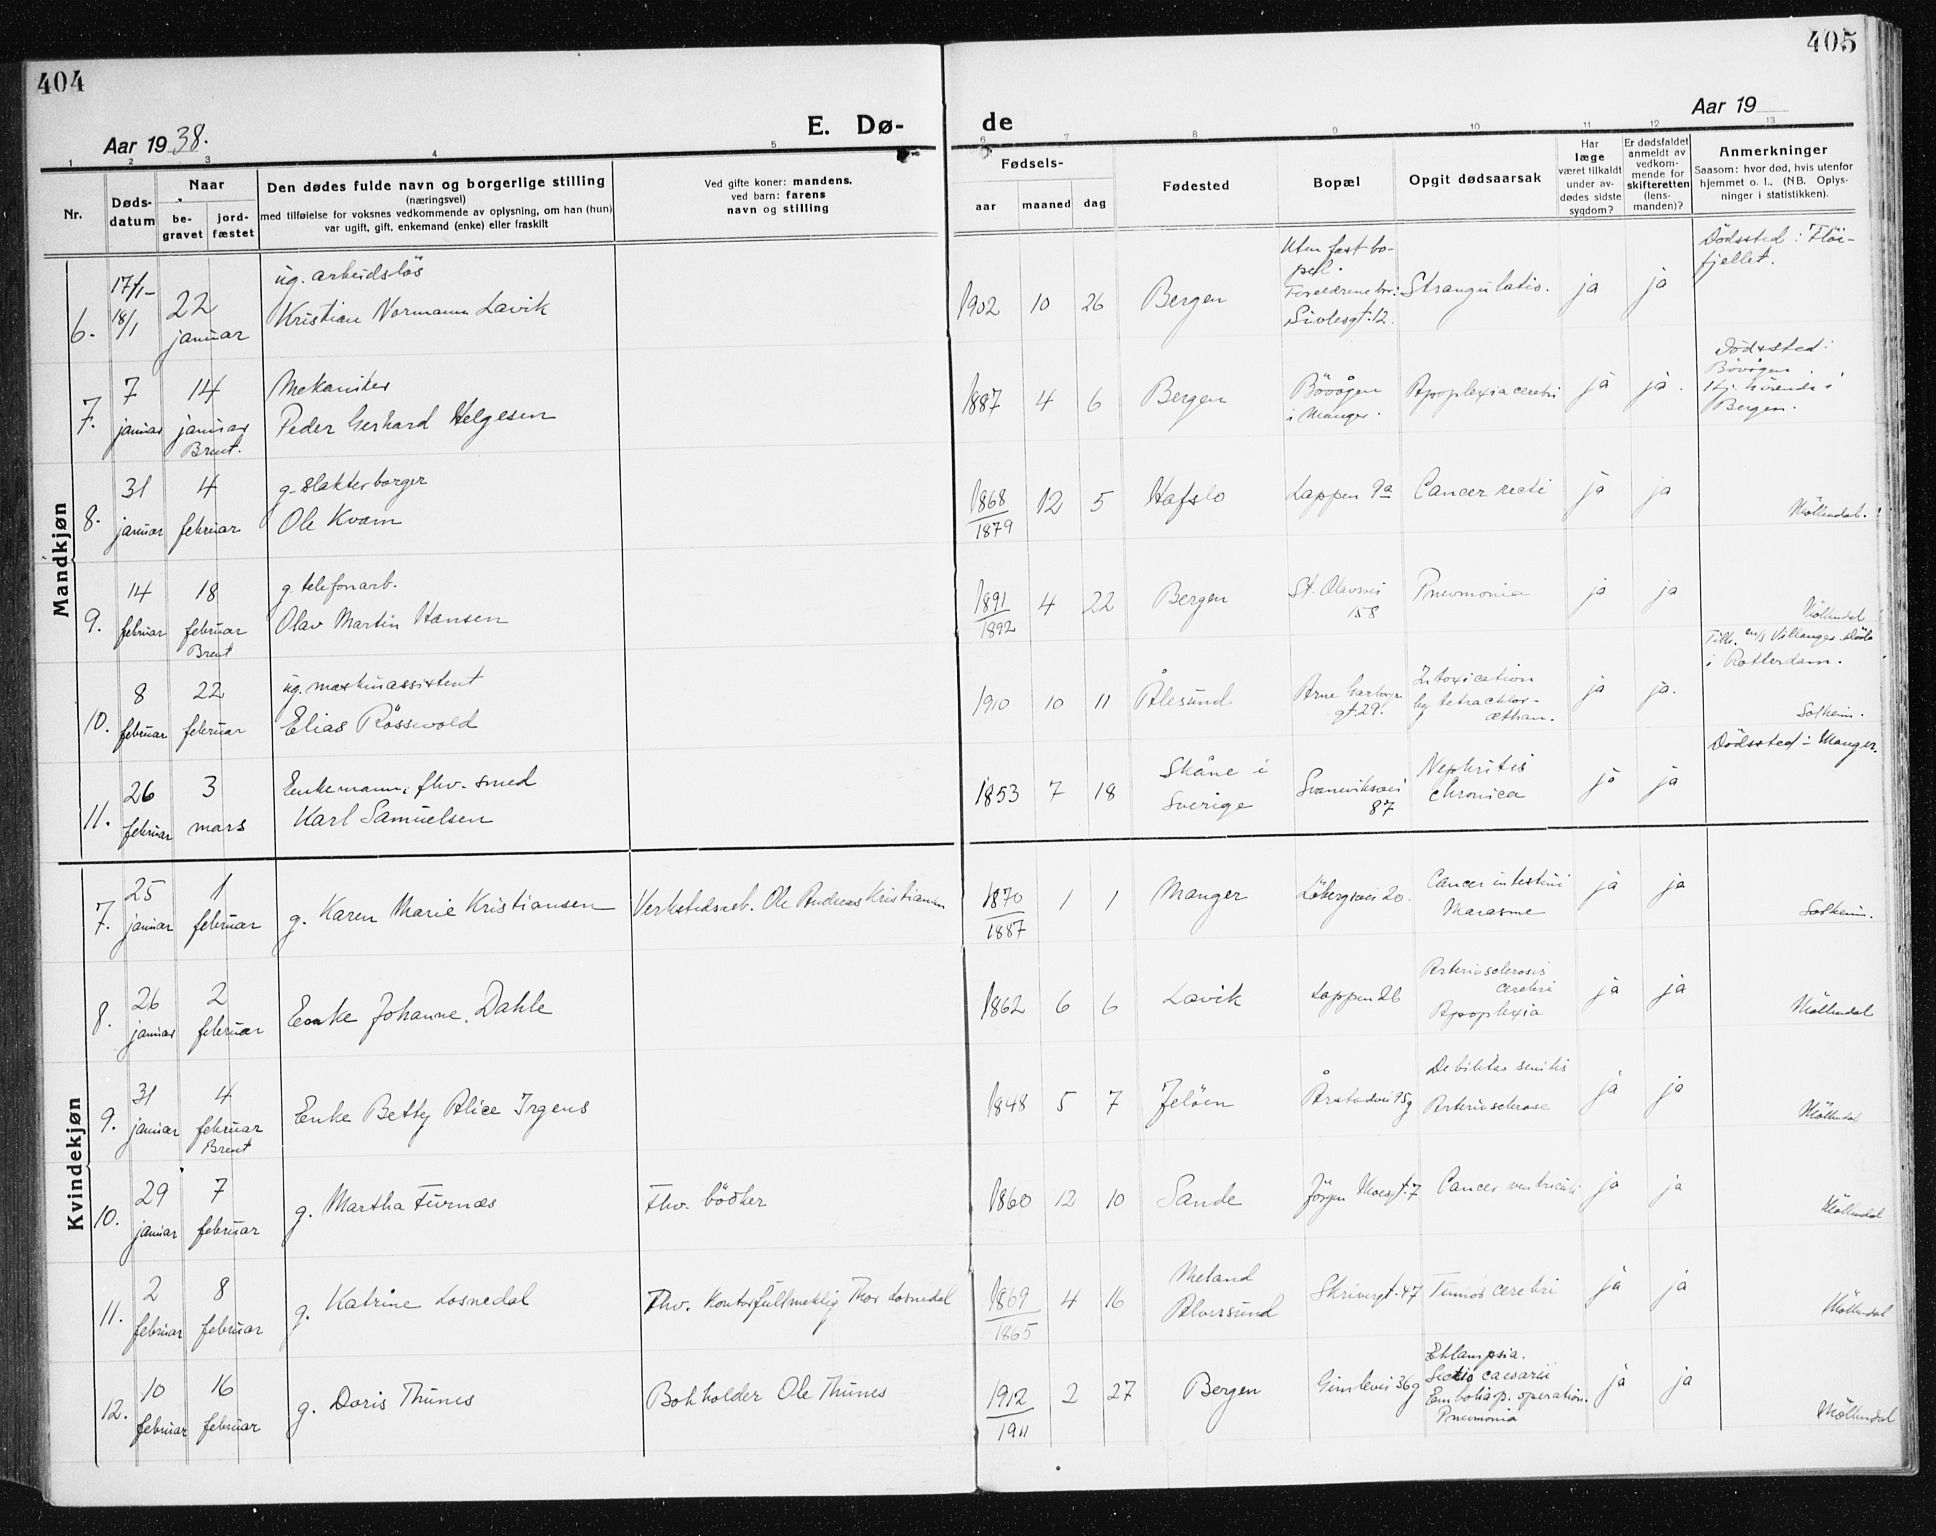 404
405
Aar 1938.
E. Dø-
de
Aar 19
1 2 3 4 5 6 7 8 9 10 11 12 13
Nr.
Døds-
datum
Naar
be-
gravet
jord-
fæstet
Den dødes fulde navn og borgerlige stilling
(næringsvei)
med tilføielse for voksnes vedkommende av oplysning, om han (hun)
var ugift, gift, enkemand (enke) eller fraskilt
Ved gifte koner: mandens,
ved barn: farens
navn og stilling
Fødsels-
aar
maaned
dag
Fødested
Bopæl
Opgit dødsaarsak
Har
læge
været tilkaldt
under av-
dødes sidste
sygdom?
Er dødsfaldet
anmeldt av
vedkom-
mende for
skifteretten
(lens-
manden)?
Anmerkninger
Saasom: hvor død, hvis utenfor
hjemmet o. l., (NB. Oplys-
ninger i statistikken).
Mandkjøn
6.
17/1-
18/1
22
januar
ug. arbeidsløs
Kristian Normann Lavik
1902 10 26
Bergen
Uten fast bo-
pæl.
Foreldrene bor:
Sivlesgt. 12.
Strangulatio.
ja
ja
Dödssted: Flöi-
fjellet.
7.
7
januar
14
januar
Brent.
Mekaniker
Peder Gerhard Helgesen
1887 4 6
Bergen
Bövågen
i Manger.
Apoplexia cerebri
ja
ja.
Dödssted:
Bövågen.
Hj. hörende i
Bergen.
8.
31
januar
4
februar
g. slakterborger
Ole Kvam
1868
1879
12 5
Hafslo
Lappen 9a
Cancer recti
ja
ja
Möllendal.
9.
14
februar
18
februar
Brent
g. telefonarb.
Olav Martin Hansen
1891
1892
4 22
Bergen
St. Olavsvei
158
Pneumonia
ja
ja
Möllendal
10.
8
februar
22
februar
ug. maskinassistent
Elias Rösswold
1910 10 11
Ålesund
Arne Garborgs
gt. 29.
Intoxication
by tetrachlor-
æthan.
ja
ja.
Tilh. m/s Vikanger. döde
i Rotterdam.
Solheim.
11.
26
februar
3
mars
Enkemann, fhv. smed
Karl Samuelsen
1853 7 18
Skåne i
Sverige
Svaneviksvei
87
Nephritis
chronica
ja
ja
Dödssted: Manger.
Kvindekjøn
7.
25
januar
1
februar
g. Karen Marie Kristiansen
Verkstedsarb. Ole Andreas Kristiansen
1870
1887
1 1
Manger
Löbergsvei 20.
Cancer intestini
Marasme
ja
ja
Solheim.
8.
26
januar
2
februar
Enke Johanne Dahle
1862 6 6
Lavik
Lappen 26
Arteriosclerosis
cerebri
Apoplexia
ja
ja
Möllendal
9.
31
januar
4
februar
Brent
Enke Betty Alice Irgens
1848 5 7
Jelöen
Årstadvei 95g
Debilitas senilis
Arteriosclerose
ja
ja
Möllendal
10.
29
januar
7
februar
g. Martha Furnæs
Fhv. bödker
1860 12 10
Sande
Jörgen Moesgt. 7
Cancer ventriculi
ja
ja
Möllendal
11.
2
februar
8
februar
g. Katrine Losnedal
Fhv. kontorfullmektig Thor Losnedal
1869
1865
4 16
Meland
Alversund
Skrivergt. 47
Tumor cerebri
ja
ja
Möllendal
12.
10
februar
16
februar
g. Doris Thunes
Bokholder Ole Thunes
1912
1911
2 27
Bergen
Gimlevei 36g
Eklampsia.
Sectio caesarii
Emboli a. p. operation.
Pneumonia
ja
ja
Möllendal